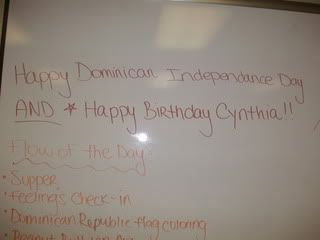 Happy Dominican Independance Day
AND * Happy Birthday Cynthia!!
Flow of the Day
• Supper
• Feelings Check-in
• Dominican Republic flag coloring